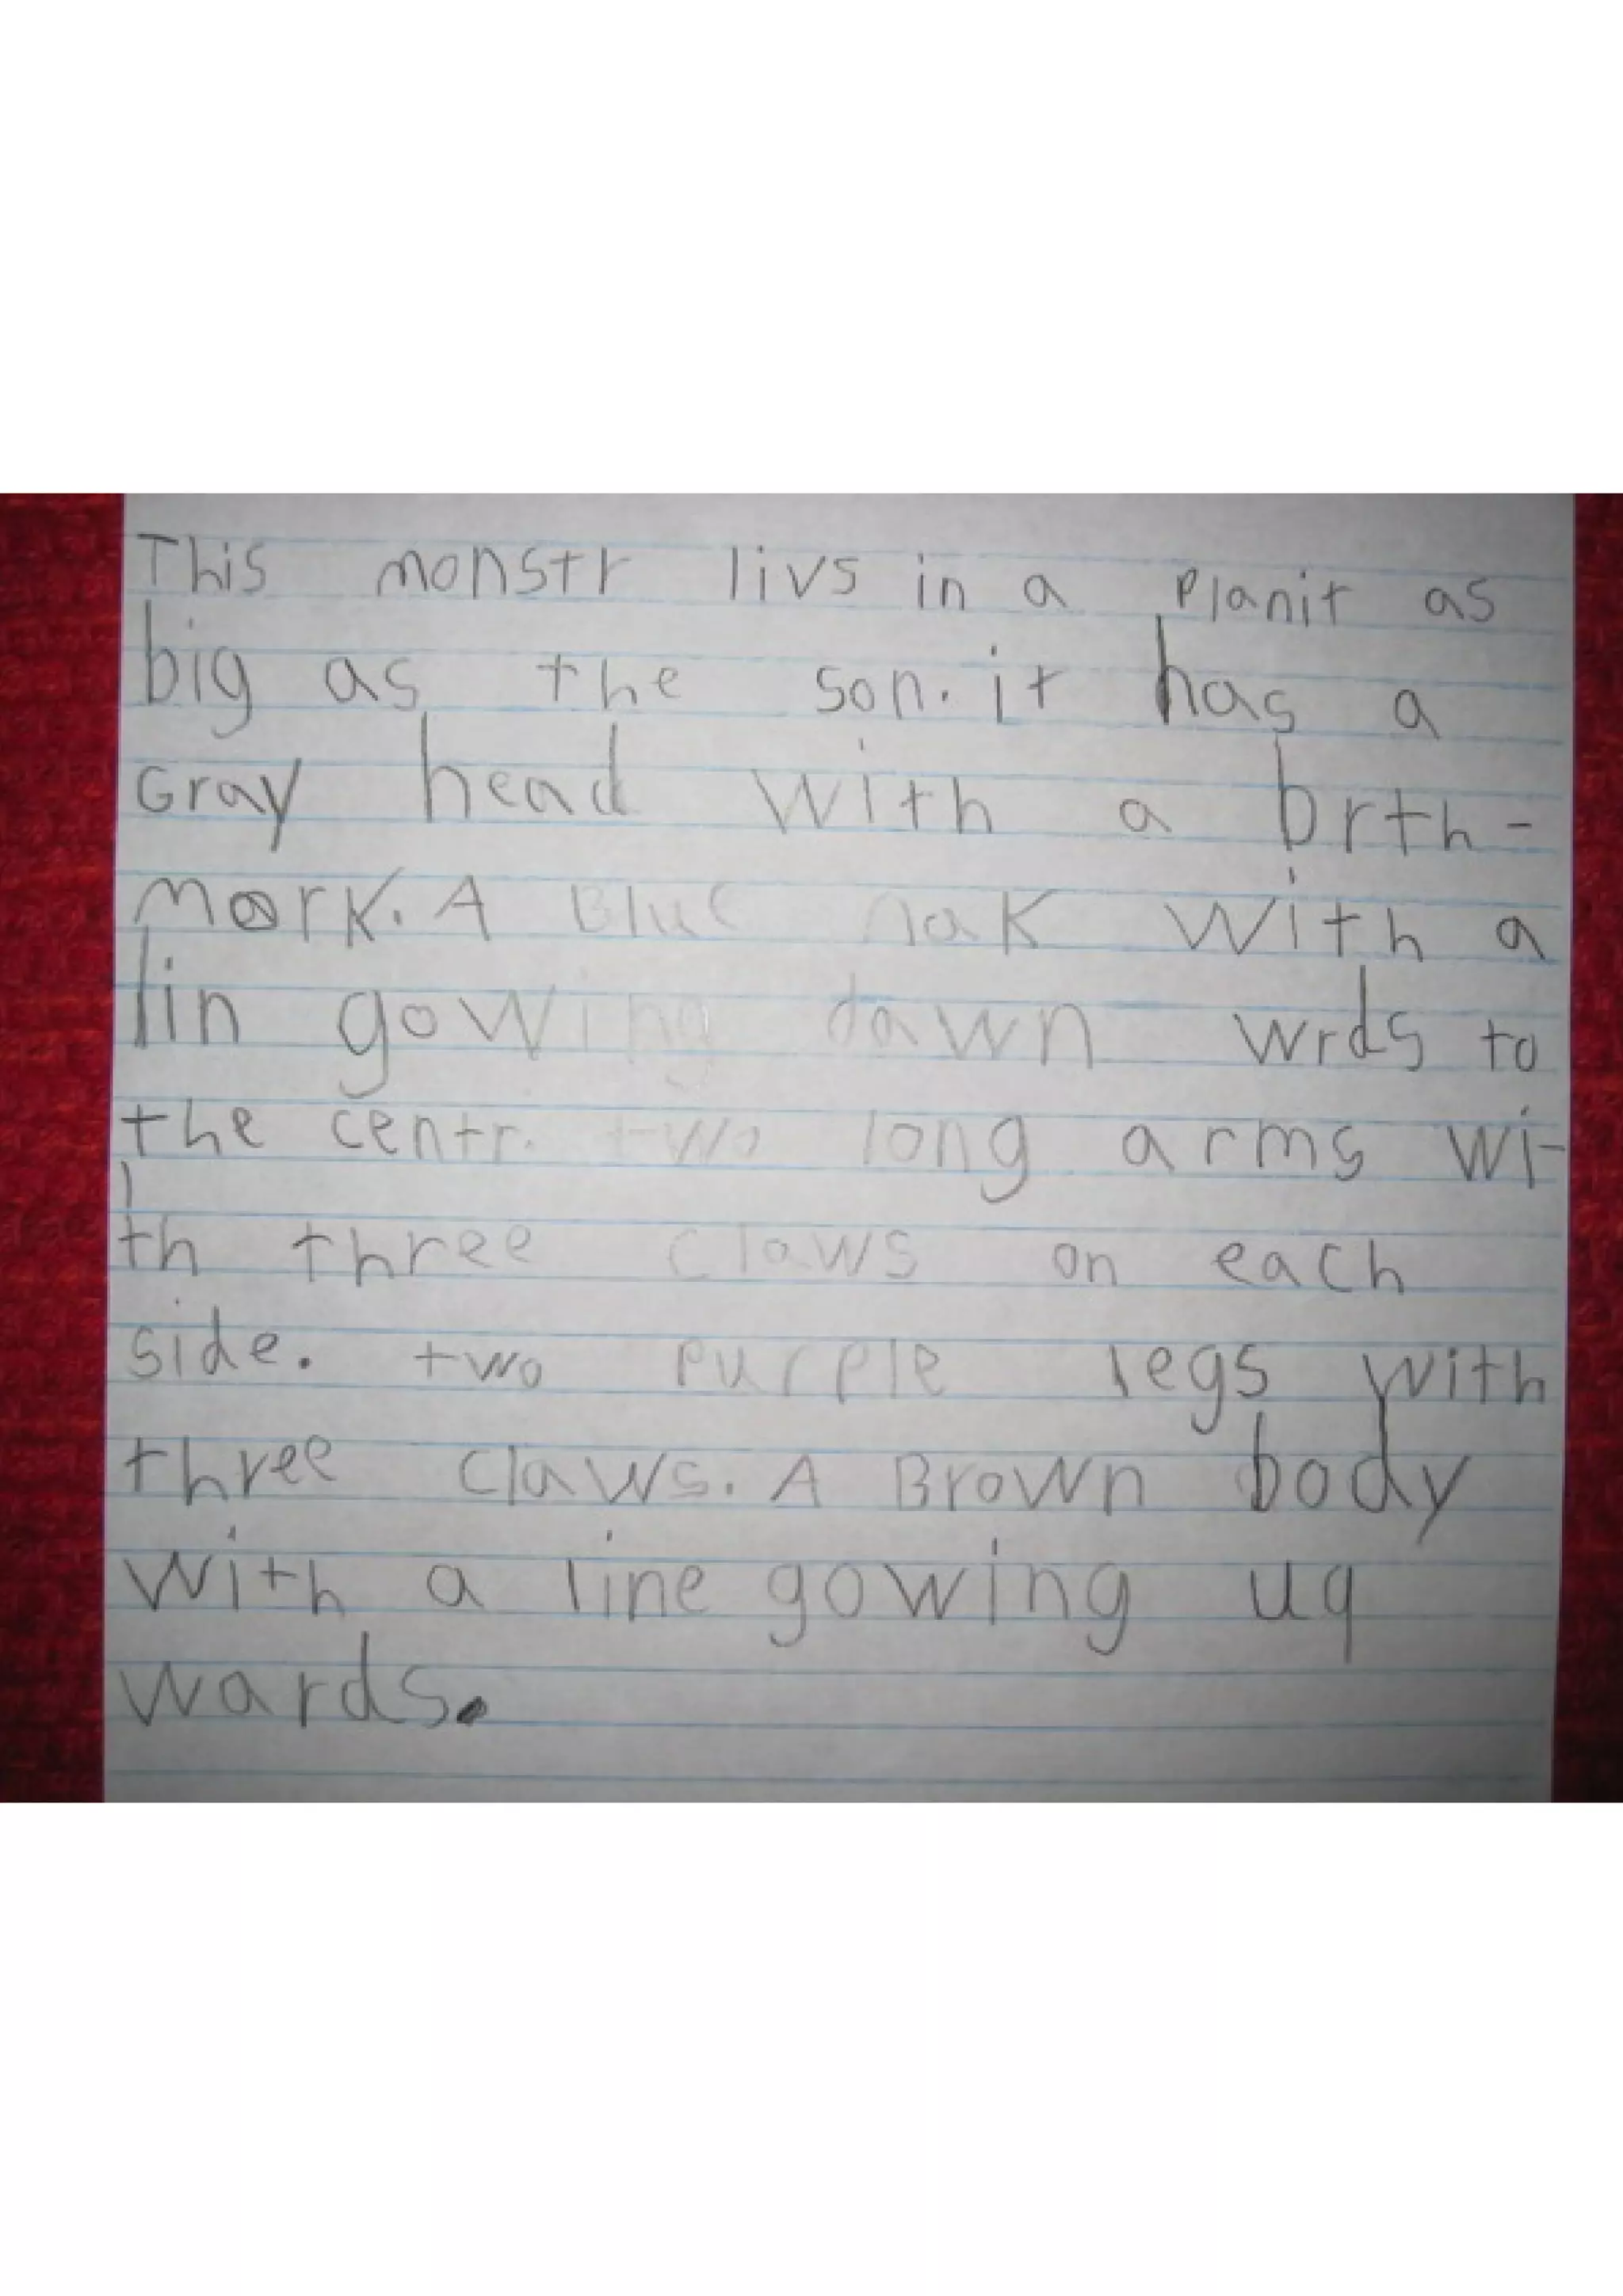 This monstr livs in a Planit as
big as the son. it has a
Gray head with a brth-
mark. A Blue nak with a
lin gowing dawn wrds to
the centr. two long arms wi-
th three claws on each
side. two purple legs with
three claws. A Brown body
with a line gowing uq
wards.